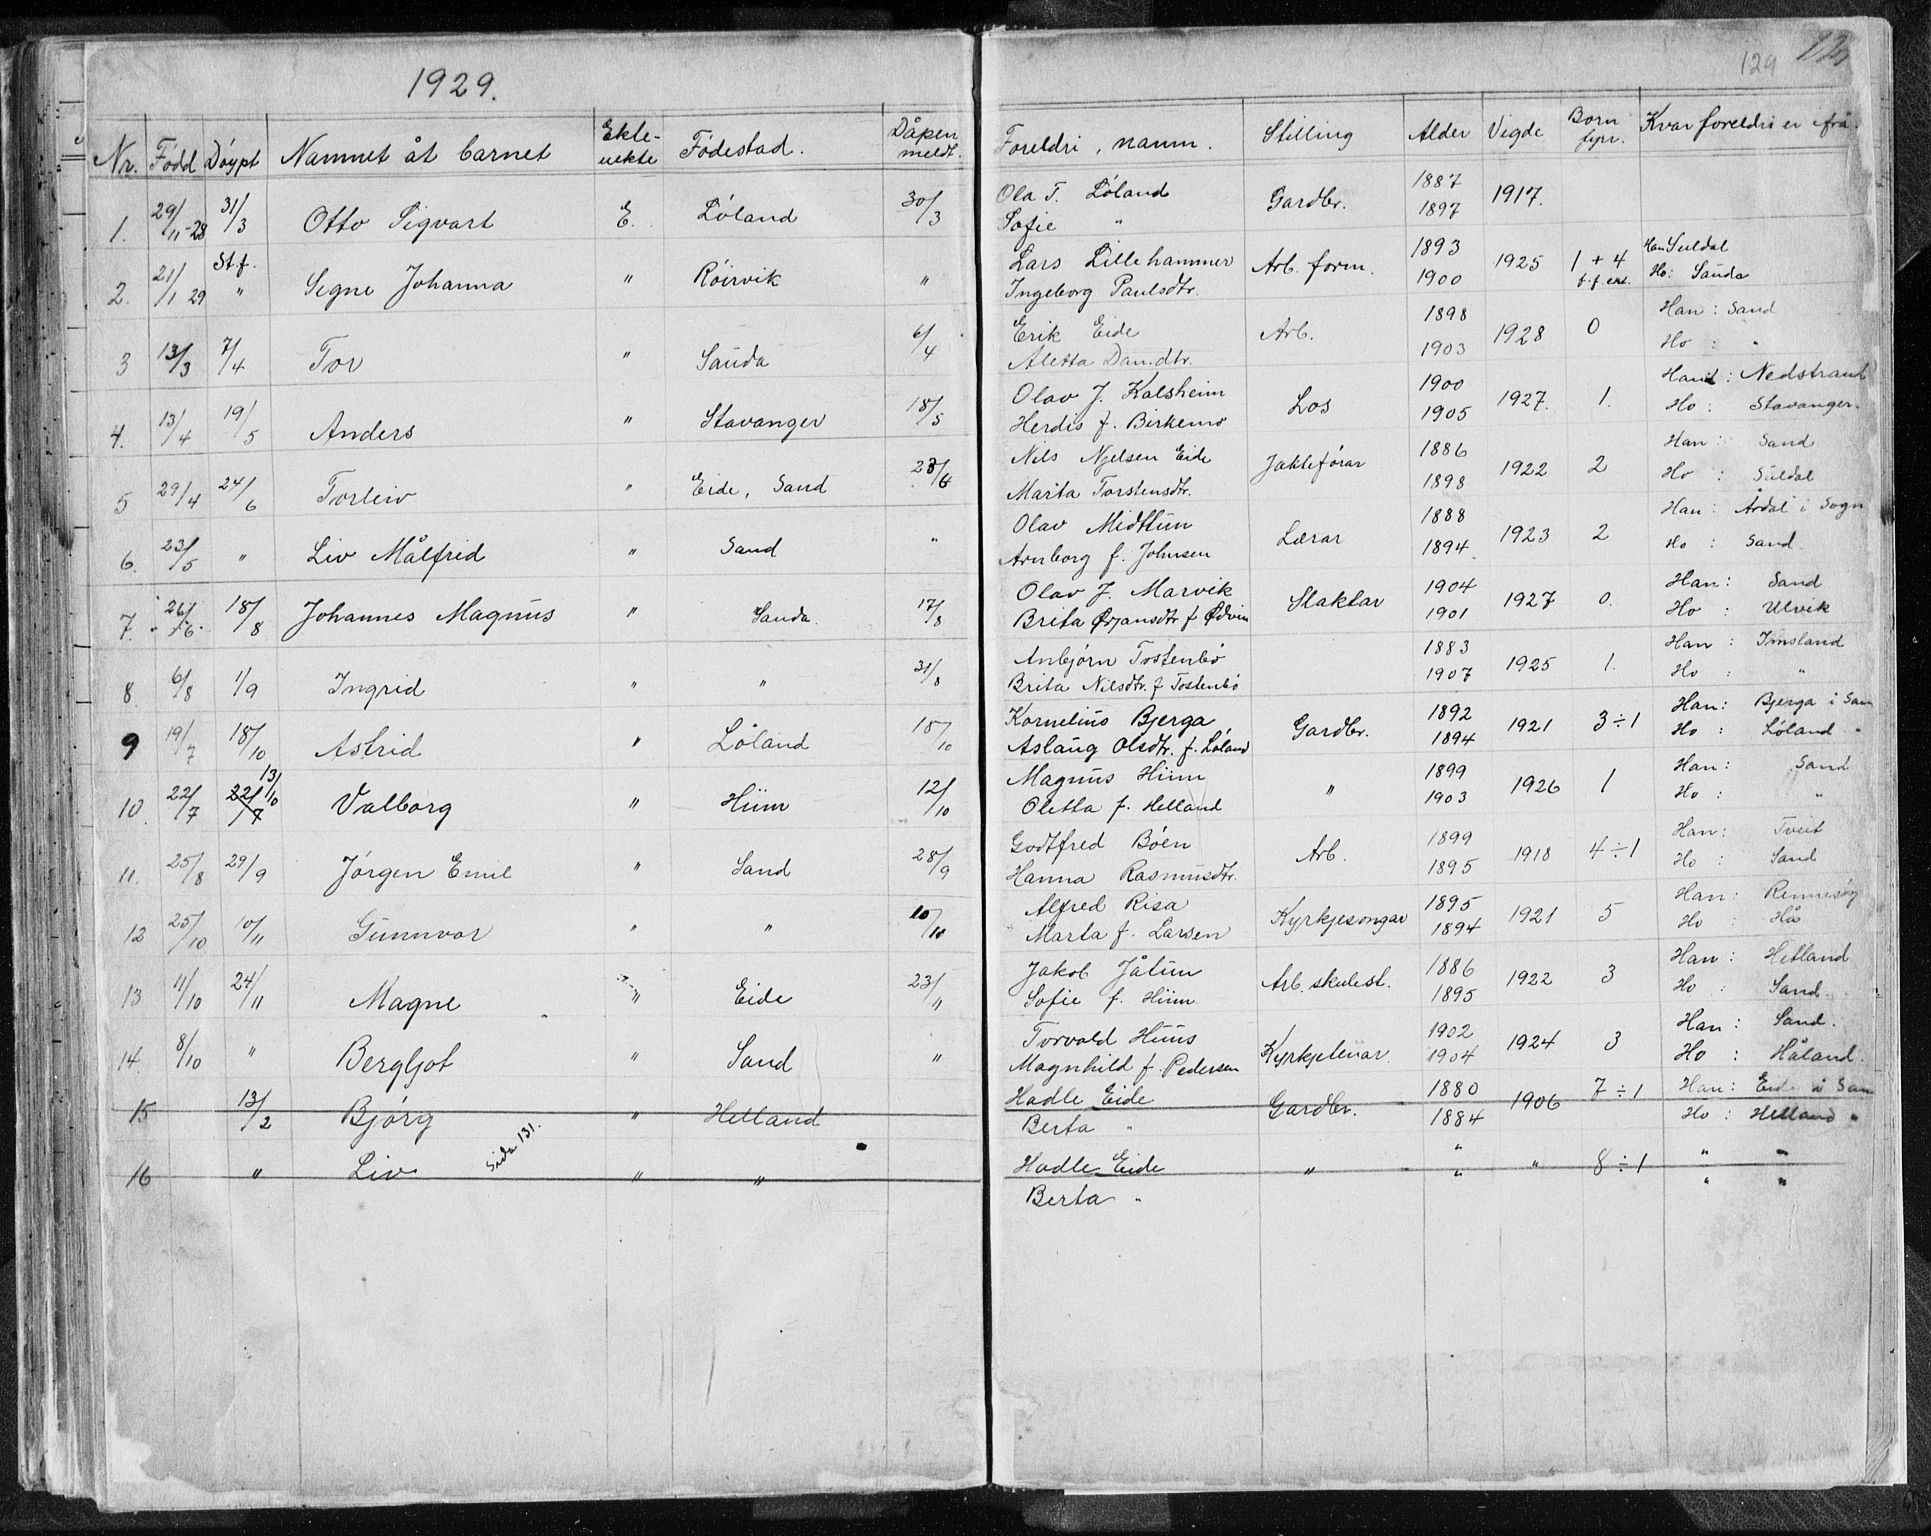 1929.
129
Nr. Född Döypt Namnet åt barnet Ekte- uekte Födestad. Dåpen meldt. Foreldri, namn. Stilling Alder Vigde Born fyrr. Kvar foreldri er ifrå.
1. 29/11-28 31/3 Otto Sigvart E. Löland 30/3 Ola T. Löland Gardbr. 1887 1917.
Sofie " 1897
2. 21/1 29 St.f. " Signe Johanna " Röirvik " Lars Lillehammer Arb. form. 1893 1925 1 + 4 Han Suldal
Ingeborg Paulsdtr. 1900 f. f. ekt. Ho: Sauda
3 13/3 7/4 Tor " Sauda 6/4 Erik Eide Arb. 1898 1928 0 Han: Sand
Aletta Dan.dtr. 1903 Ho : "
4. 13/4 19/5 Anders " Stavanger 18/5 Olav J. Kalsheim Los 1900 1927. 1. Han: Nedstrand
Herdis f. Birkemo 1905 Ho : Stavanger.
5 29/4 24/6 Torleiv " Eide, Sand 23/6 Nils Njelsen Eide Jakteförar 1886 1922 2 Han: Sand
Marita Torstensdtr. 1898 Ho : Suldal
6. 23/5 " Liv Målfrid " Sand " Olav Midttun Lærar 1888 1923 2 Han: Årdal i Sogn
Arnborg f. Johnsen 1894 Ho : Sand.
7. 26/6 18/8 Johannes Magnus " Sauda. 17/8 Olav J. Marvik Slaktar 1904 1927 0. Han: Sand
Brita Ørjansdtr f Ødvin 1901 Ho : Ulvik
8 6/8 1/9 Ingrid " " 31/8 Anbjörn Tostenbö 1883 1925 1. Han : Imsland
Brita Nilsdtr. f Tostenbö 1907 Ho : "
9 19/7 18/10 Astrid " Löland 18/10 Kornelius Bjerga Gardbr. 1892 1921 3 ÷ 1 Han: Bjerga i San
Aslaug Olsdtr. f. Löland 1894 Ho : Löland "
10. 22/7 22/7 13/10 Valborg " Hiim 12/10 Magnus Hiim " 1899 1926 1 Han: Sand
Oletta f. Helland 1903 Ho : "
11. 25/8 29/9 Jörgen Emil " Sand 28/9 Godtfred Böen Arb. 1899 1918 4 ÷ 1 Han: Tveit
Hanna Rasmusdtr. 1895 Ho : Sand
12 25/10 10/11 Gunnvor " " 10/10 Alfred Risa Kyrkjesongar 1895 1921 5 Han: Rennesøy
Marta f. Larsen 1894 Ho : Hå
13 11/10 24/11 Magne " Eide 23/11 Jakob Jåtun Arb. skulest. 1886 1922 3 Han : Hetland
Sofie f. Hiim 1895 Ho : Sand.
14. 8/10 " Bergljot " Sand " Torvald Huus Kyrkjetenar. 1902 1924 3 Han : Sand.
Magnhild f. Pedersen 1904 Ho : Håland.
15 13/2 Björg " Helland Hadle Eide Gardbr. 1880 1906 7 ÷ 1 Han: Eide i San
Berta " 1884 Ho : Helland "
Sida 131.
16 " Liv " " Hadle Eide " " " 8 ÷ 1 " "
Berta " " " "